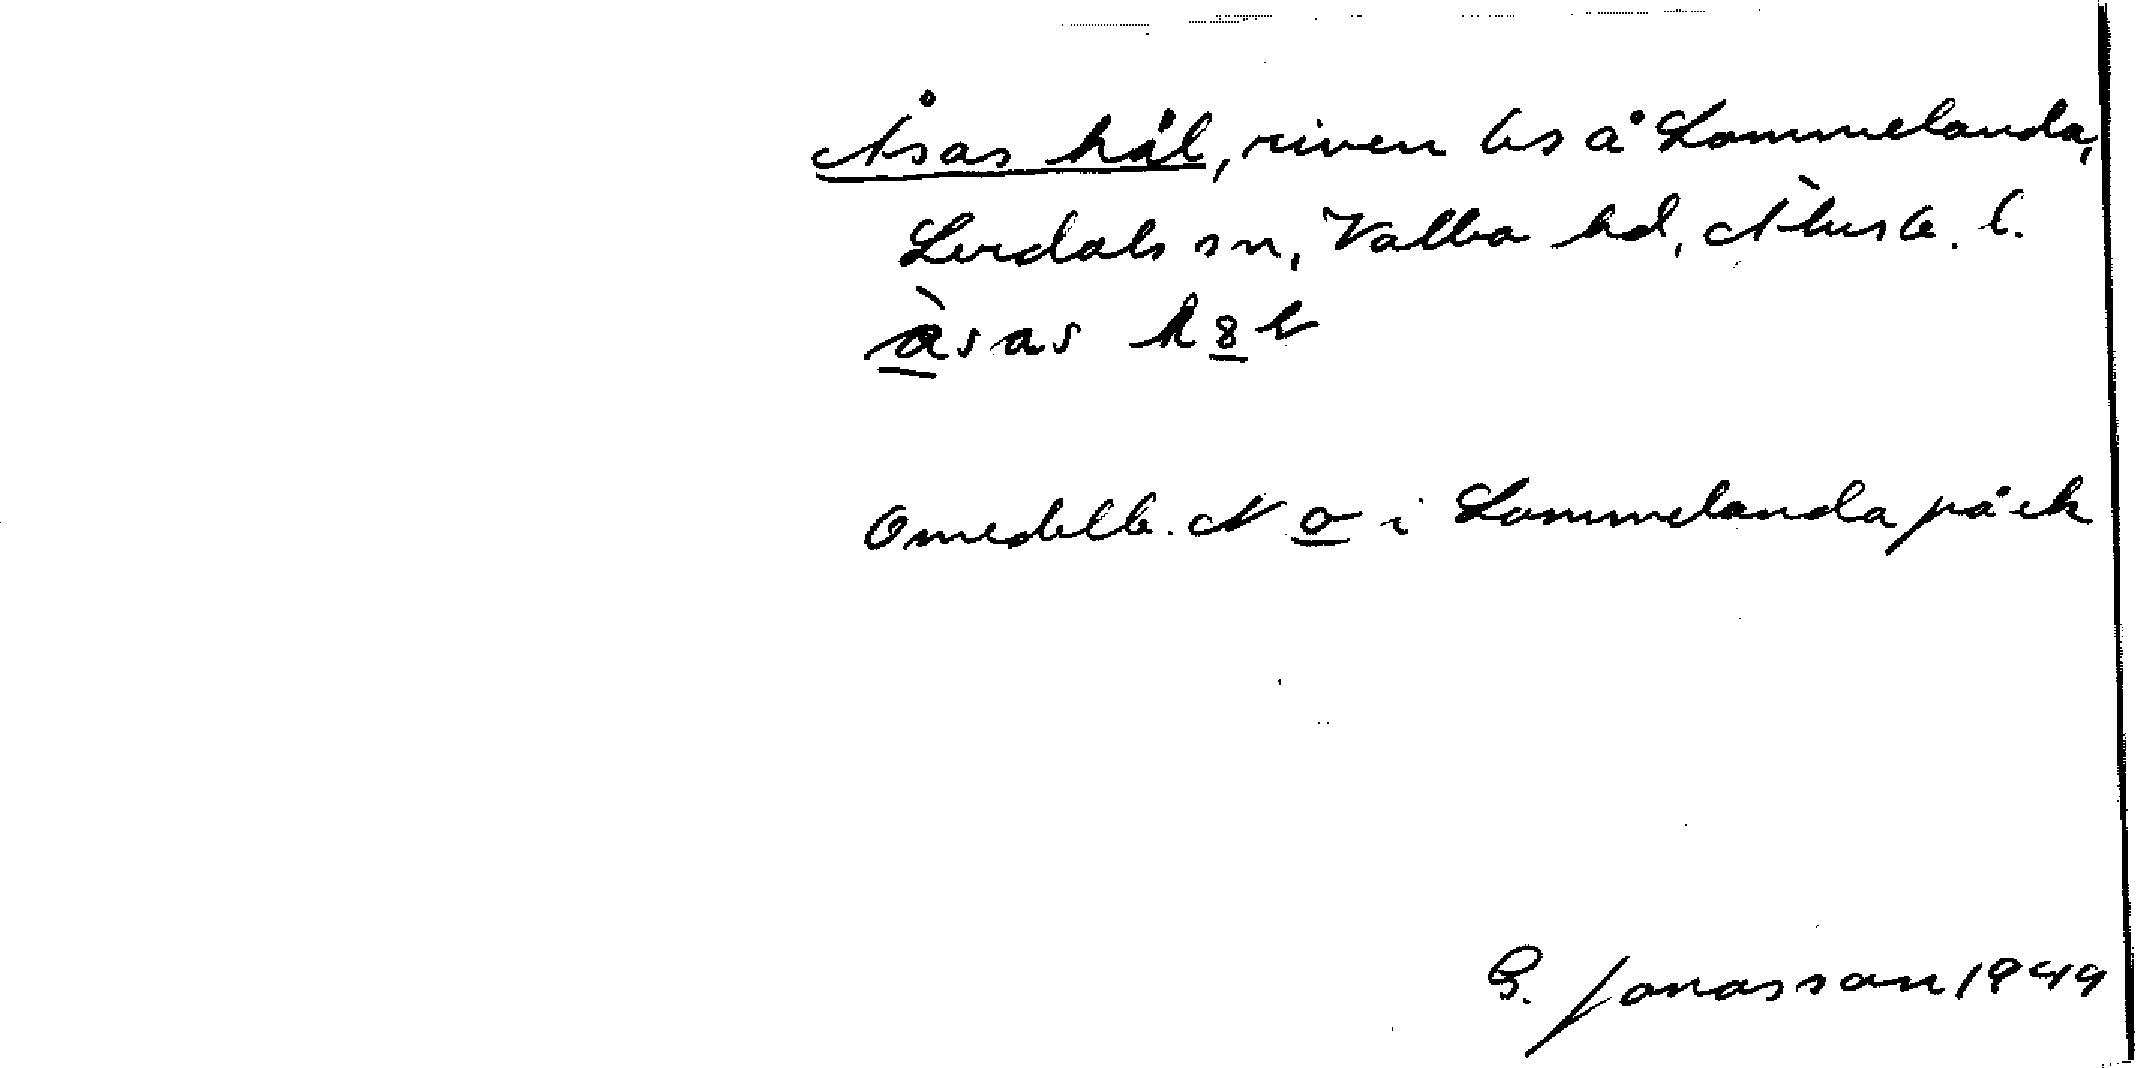 Åsas hål, riven bs å Lommelanda,
Lerdals sn, Valbo hd, Älvsb. l.
àsas h8l
Omedelb. N o i Lommelanda på ek
G. Jonasson 1949